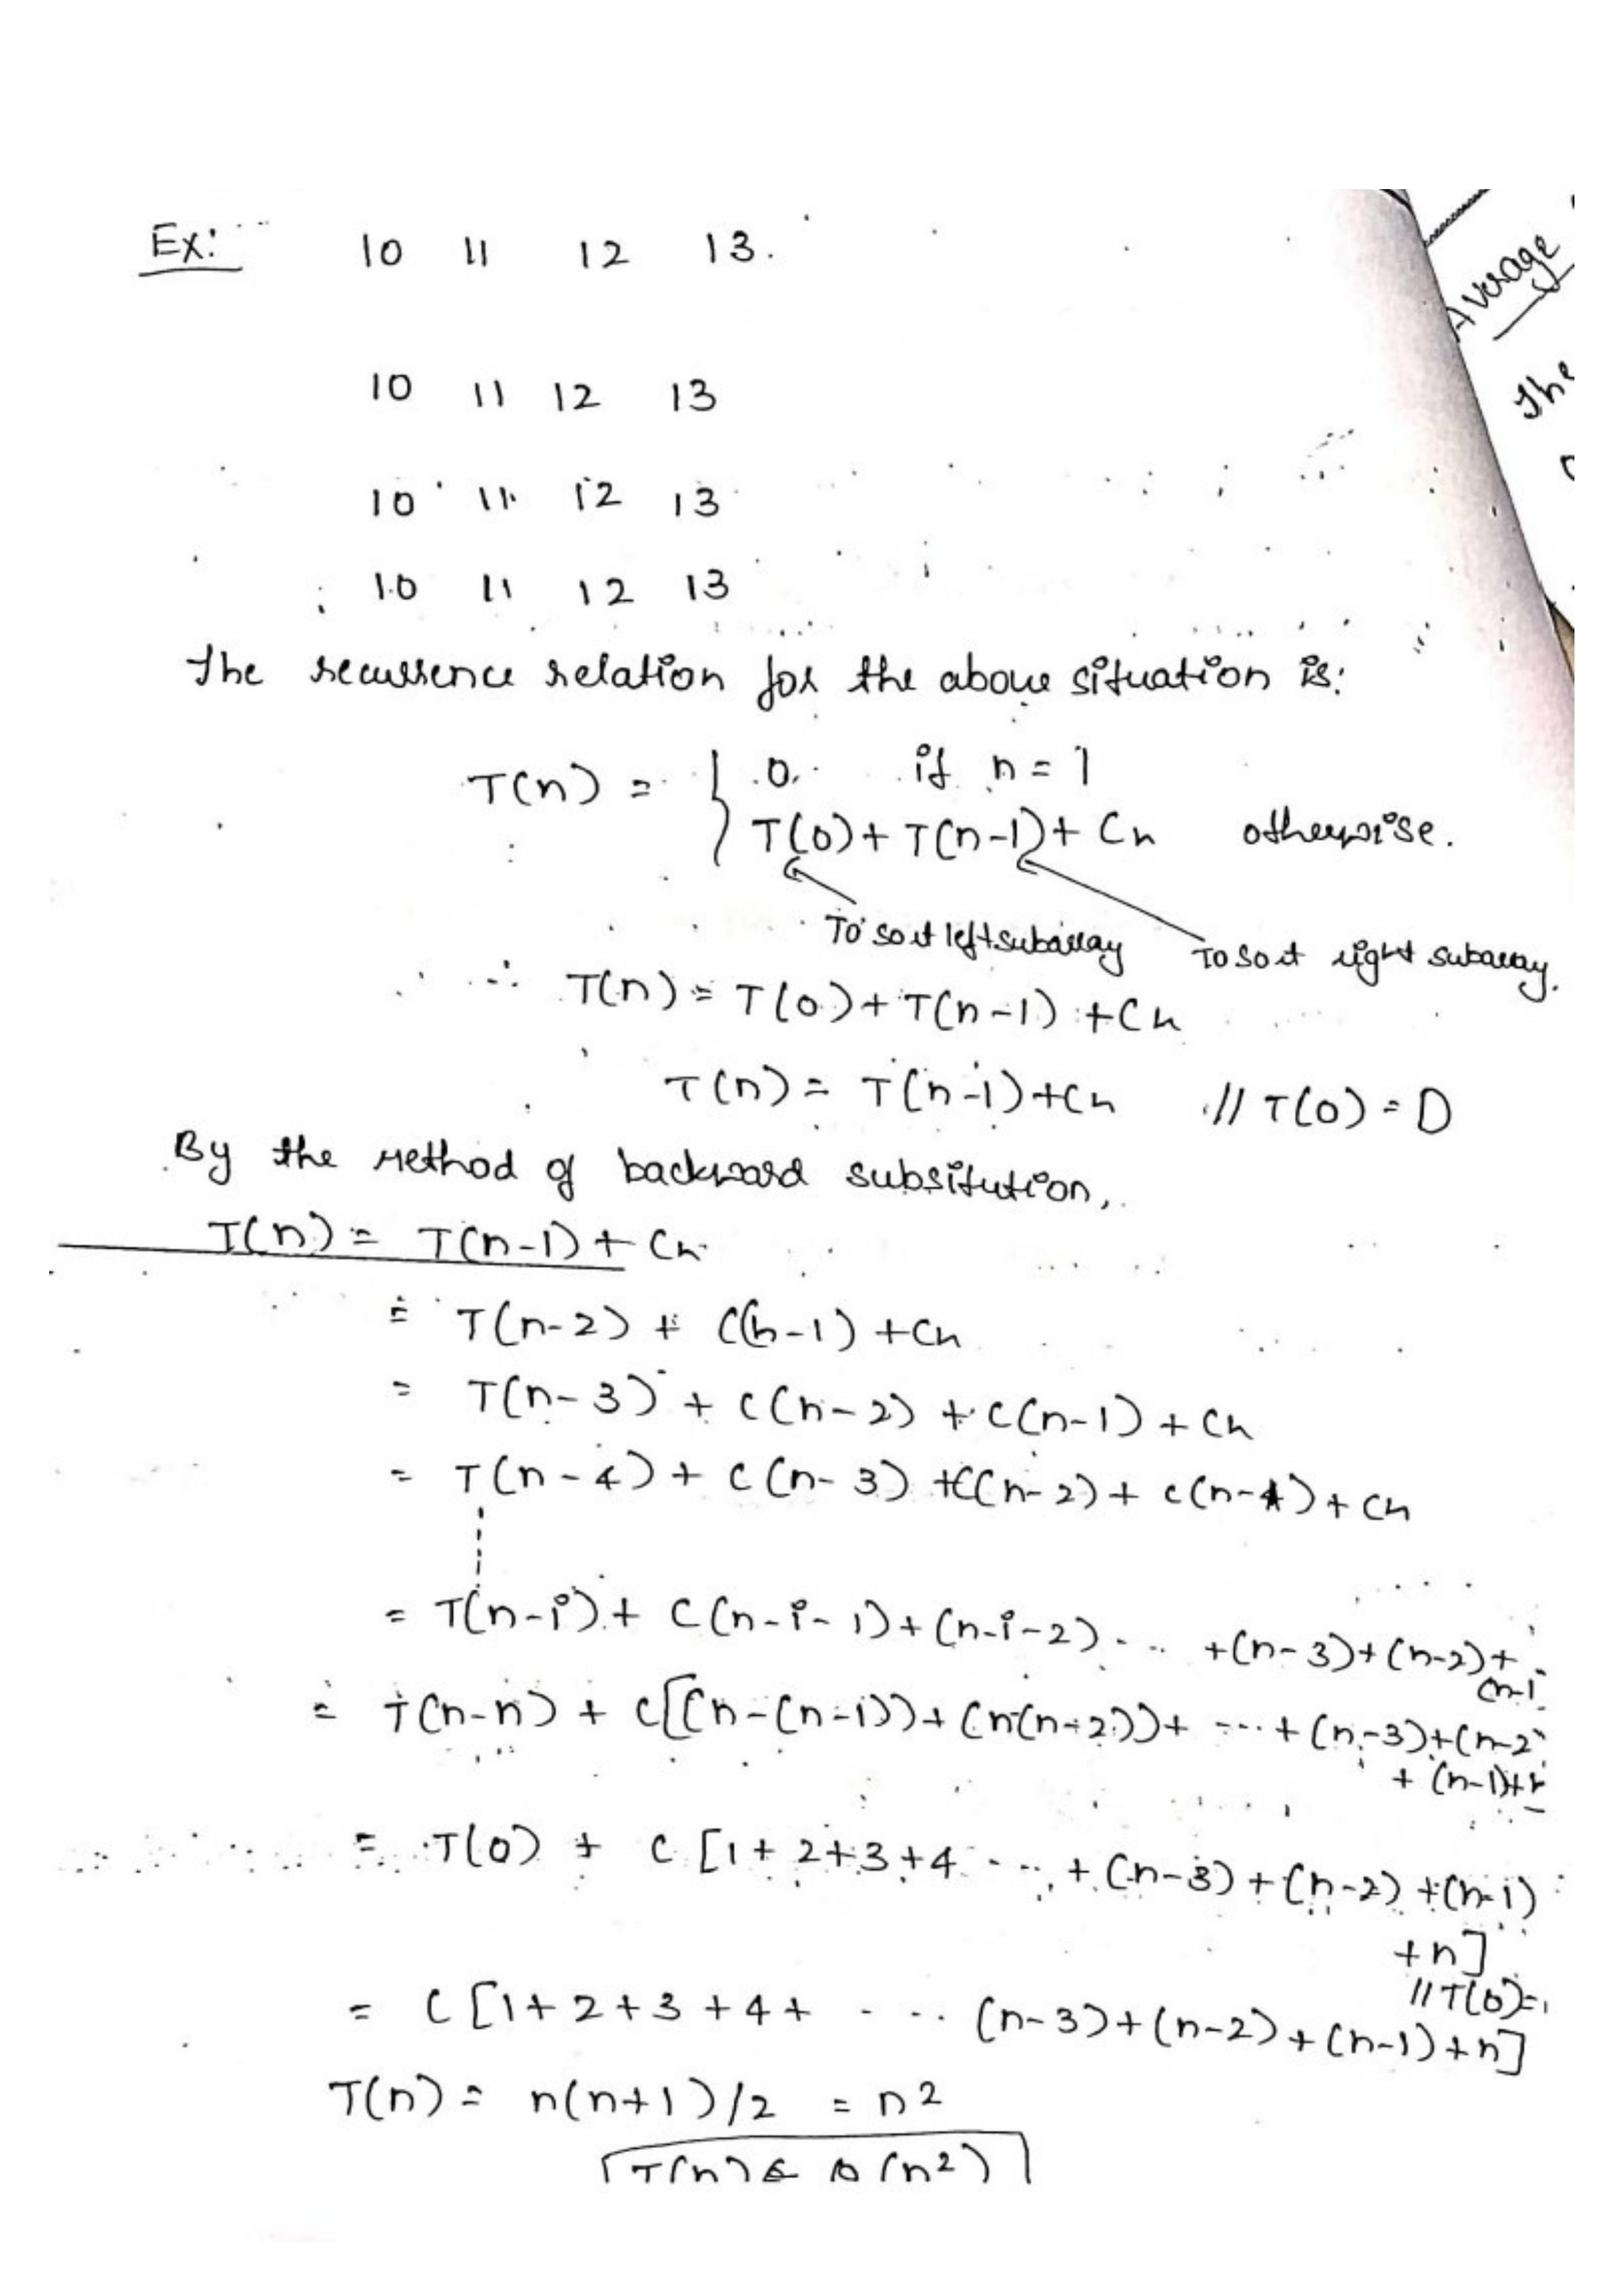 Ex: 10 11 12 13.
Average
10 11 12 13
The
10 11 12 13
10 11 12 13
The recurrence relation for the above situation is:
T(n) = { 0 if n = 1
T(0) + T(n-1) + Cn otherwise.
To sort left subarray To sort right subarray.
∴ T(n) = T(0) + T(n-1) + Cn
T(n) = T(n-1) + Cn // T(0) = 0
By the method of backward subsitution,
T(n) = T(n-1) + Cn
= T(n-2) + C(n-1) + Cn
= T(n-3) + C(n-2) + C(n-1) + Cn
= T(n-4) + C(n-3) + C(n-2) + C(n-1) + Cn
= T(n-i) + C(n-i-1) + (n-i-2) .... + (n-3) + (n-2) +
(n-1
= T(n-n) + C[(n-(n-1)) + (n(n-2)) + .... + (n-3) + (n-2
+ (n-1) + n
= T(0) + C [1 + 2 + 3 + 4 .... + (n-3) + (n-2) + (n-1)
+ n]
// T(0) =
= C [1 + 2 + 3 + 4 + .... (n-3) + (n-2) + (n-1) + n]
T(n) = n(n+1)/2 = n2
T(n) ∈ Θ(n2)